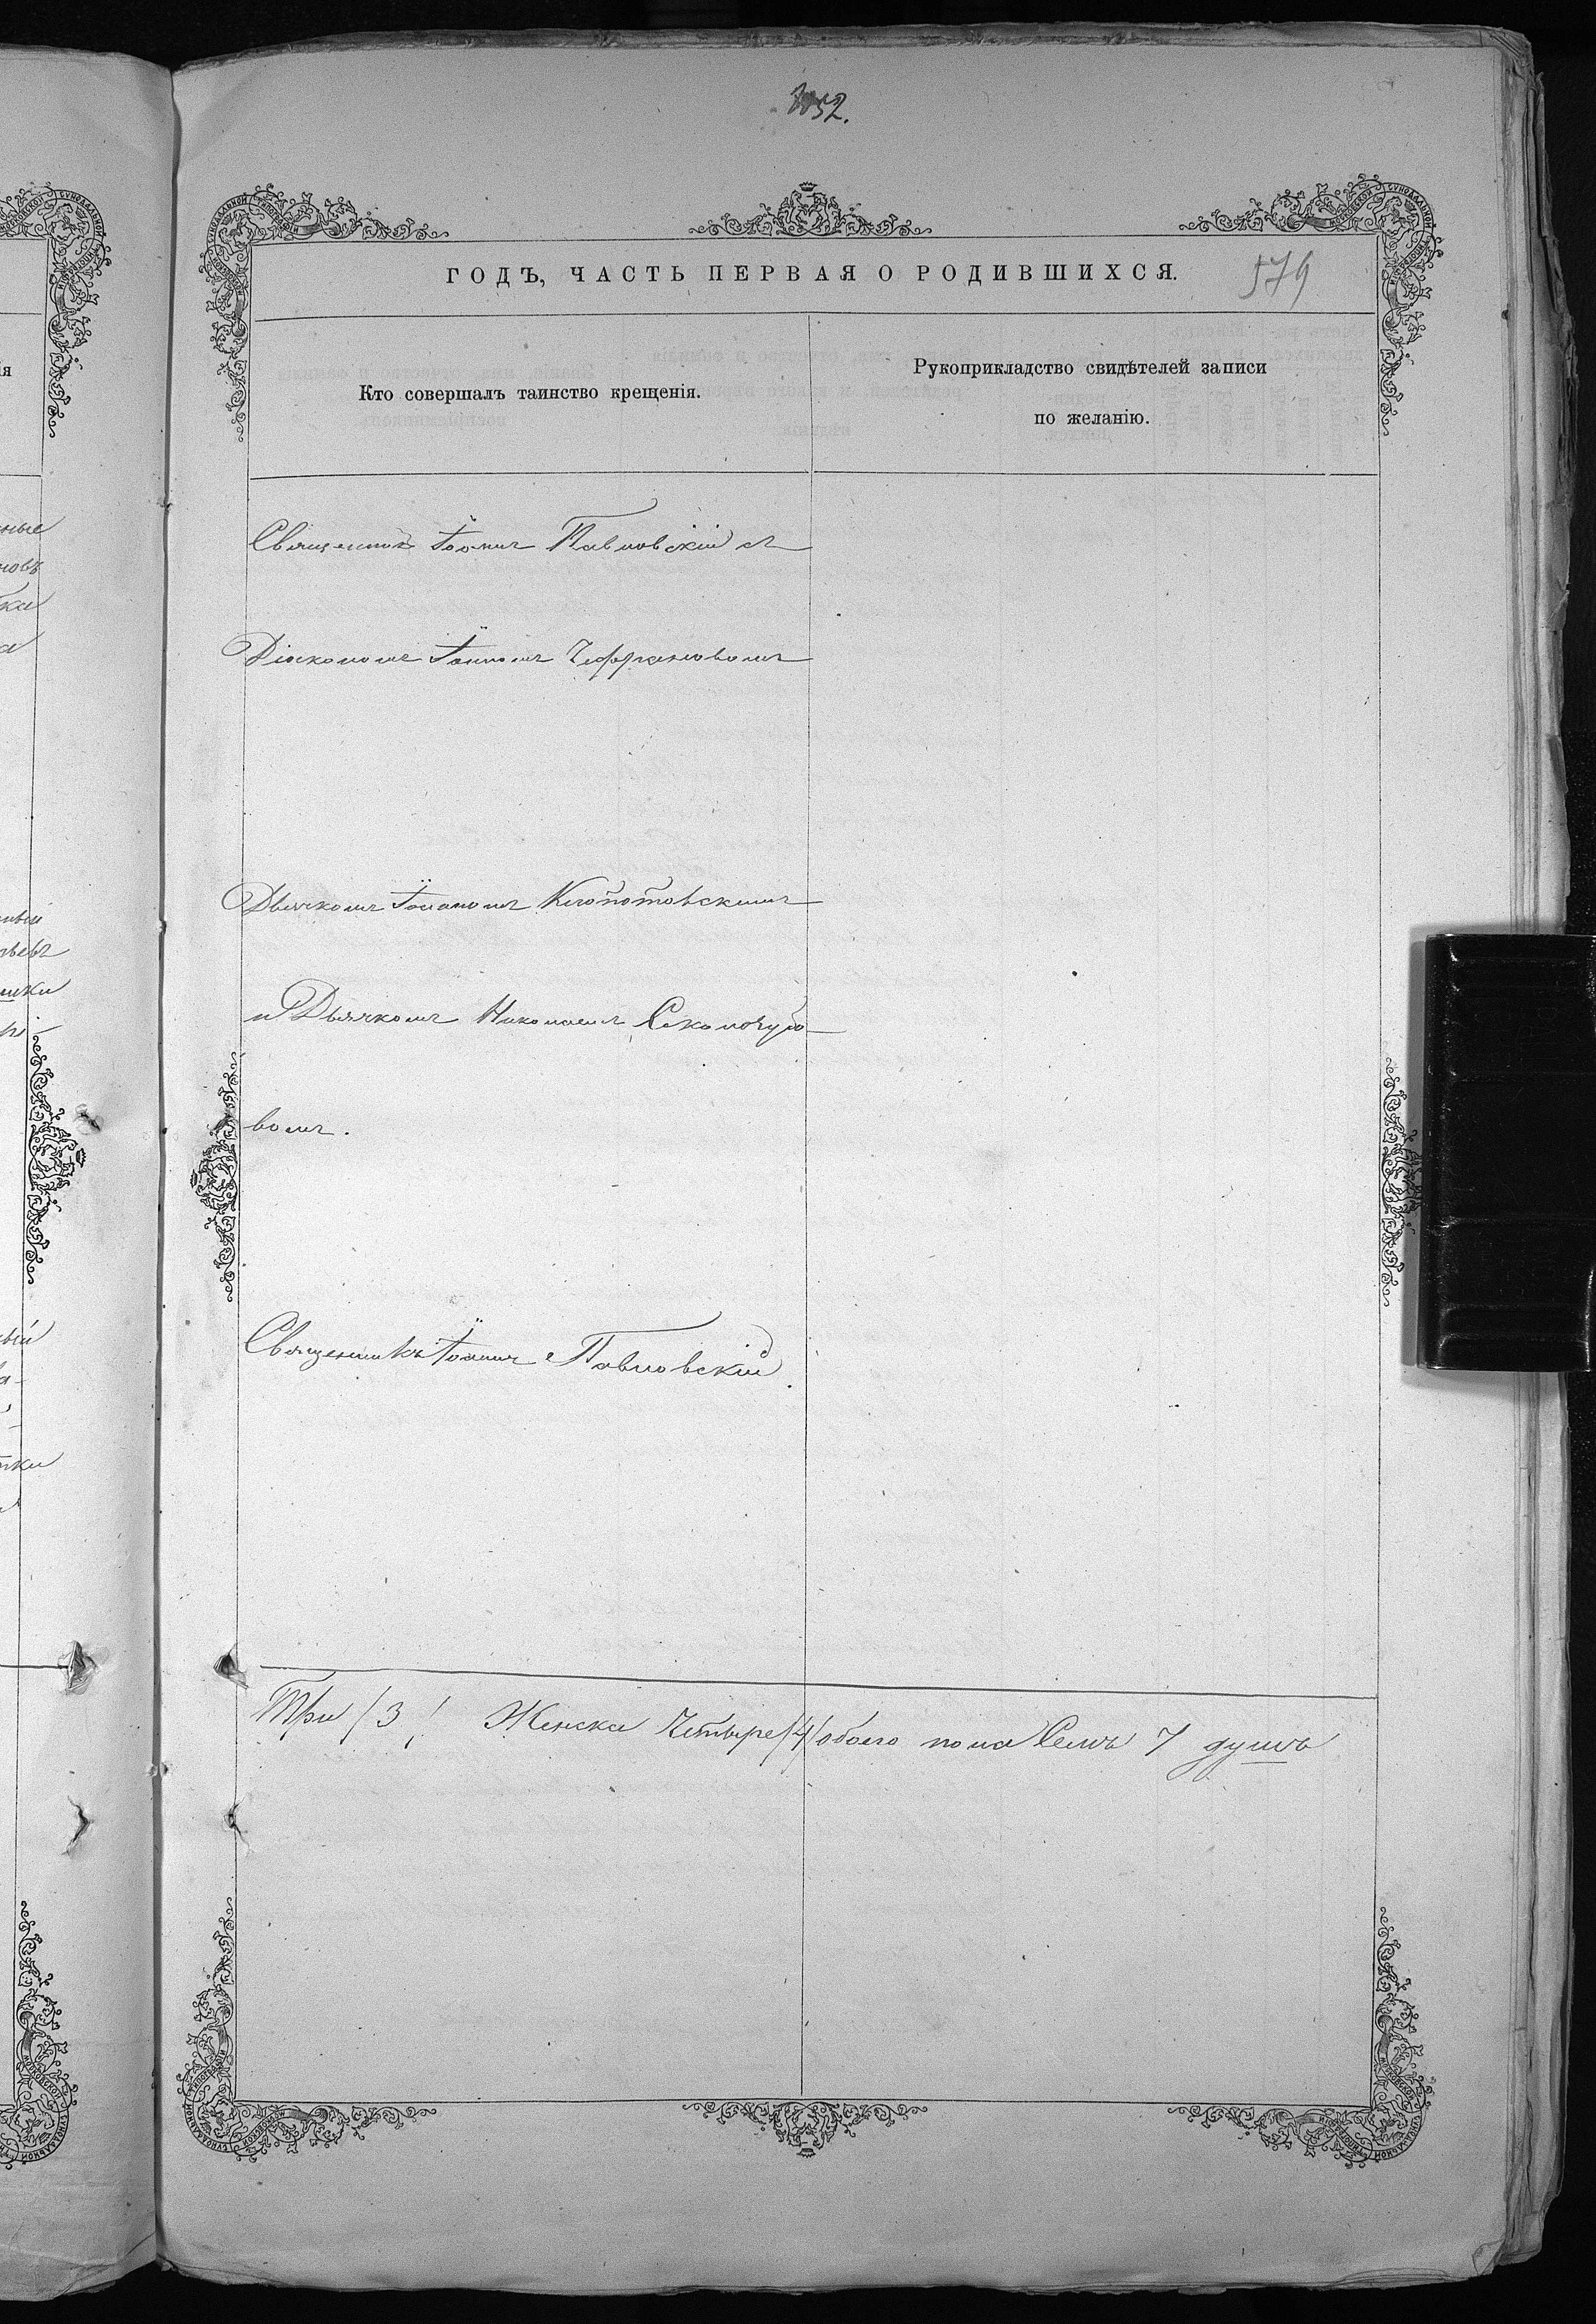 52.
ГОДЪ, ЧАСТЬ ПЕРВАЯ О РОДИВШИХСЯ.
579
Кто совершалъ таинство крещенія.
Рукоприкладство свидѣтелей записи
по желанію.
Священникъ Іоаннъ Павловскій съ
Діакономъ Іоанномъ
Дьячкомъ Іоаномъ Клопотовскимъ
и Дьячкомъ Николаемъ
вомъ.
Священникъ Іоаннъ Павловскій.
Три /3/ Женска Четыре /4/ обоего пола Семь 7 душъ